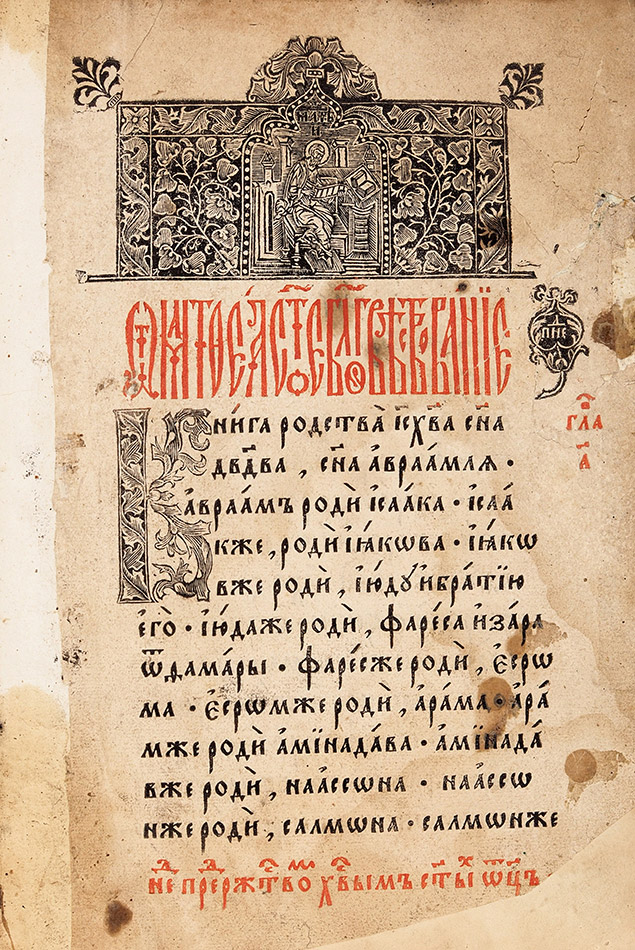 МАТѲЕИ
Ѿ МАТѲЕѦ СТ҃ОЕ БЛГ҃ОВѢСТВОВАНЇЕ
ПНЕ
гла
а҃
Кни́га родства̀ і҆с х҃ва сн҃а
дв҃два, сн҃а а҆враа́млѧ ·
а҆враа́мъ родѝ і҆саа́ка · і҆саа́
кже, родѝ і҆а́кѡва · і҆а́кѡ
вже родѝ, і҆ю́ду и҆бра́тїю
є҆го̀ · і҆ю́даже родѝ, фаре́са и҆за́ра
ѿ ѳама́ры · фаре́сже родѝ, є҆срѡ
ма · є҆срѡмже родѝ, а҆ра́ма · а҆ра́
мже родѝ а҆мїнада́ва · а҆мїнада́
вже родѝ, наа҆ссѡна · наа҆ссѡ
нже родѝ, салмѡна · салмѡнже